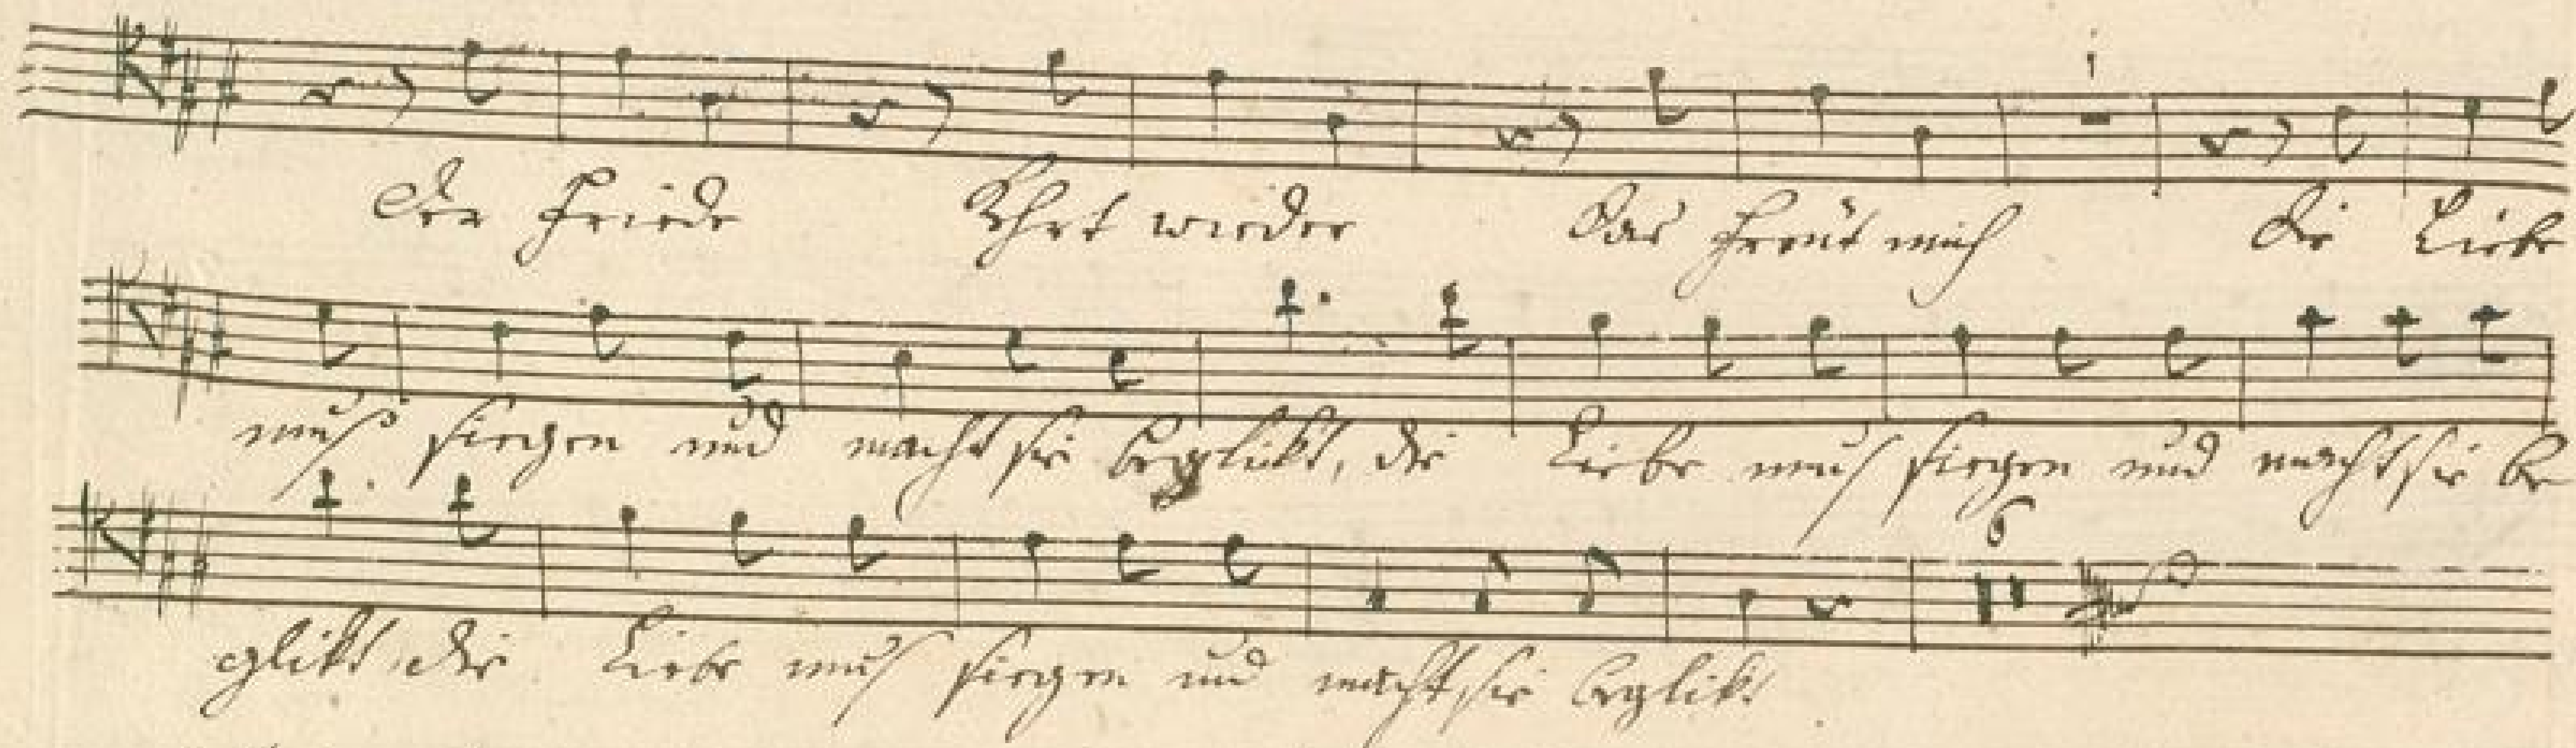 1
Der Friede Kehrt wieder das freut mich die Liebe
muß siegen und macht sie beglükt, die Liebe muß siegen und macht sie be
6
glükt die Liebe muß siegen und macht sie beglükt